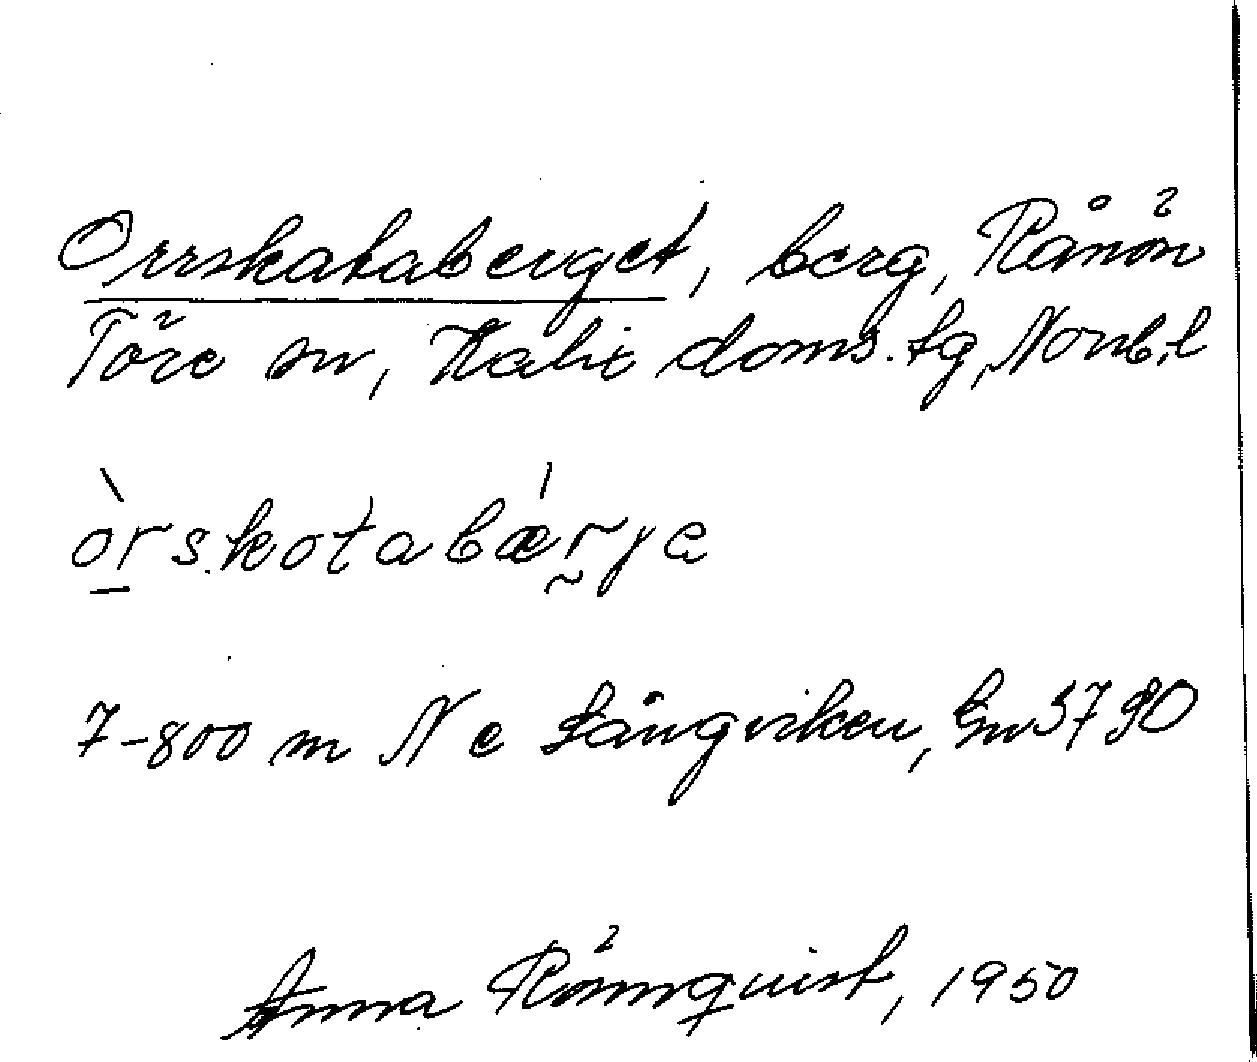 Orrskataberget, berg, Rånön
Töre sn, Kalix doms.tg, Norrb.l
òrskotabǽrje
7-800 m N e Långviken, Gm 3790
Anna Rönnquist, 1950